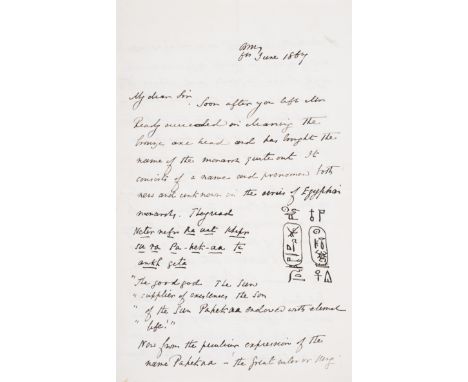 BM
6th June 1867
My dear Sir
Soon after you left Mr
Ready succeeded in cleaning the
bronze axe head and has brought the
name of the monarch quite out. It
consists of a name and prenomen both
new and unknown in the series of Egyptian
monarchs. They read
Neter nefer Ra uat khepr
su ra Pa-hek-aa ta
ankh geta
"The good god The Sun
"supplier of existences the son
"of the Sun Pahekaa endowed with eternal
"life."
Now from the peculiar expression of the
name Pahekaa - 'the great ruler or King'